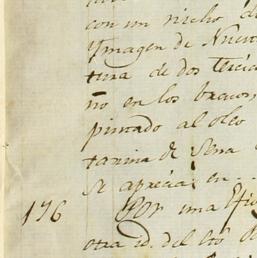 con un nicho d
Ymagen de Nues
tura de dos Tercia
ño en los brazos
pintado al oleo
tarina de Sena
Se aprecia en
176 Por una Efi
otra id. del Sto